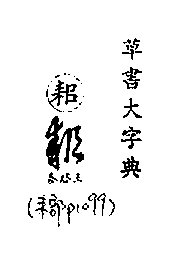 草書大字典
耜
(耒部p1099)